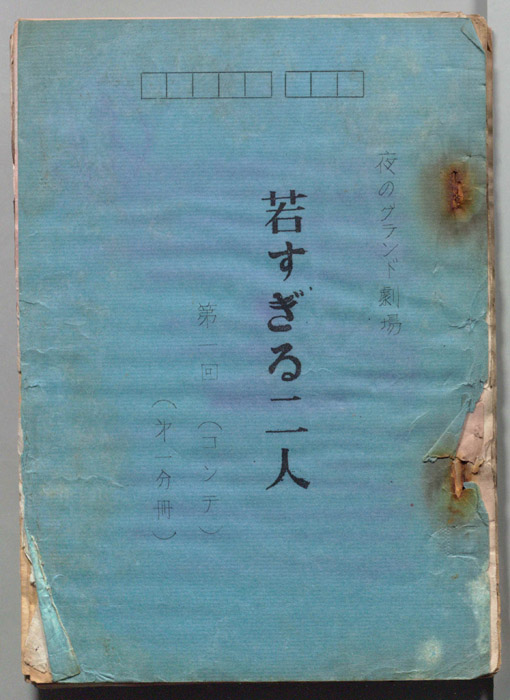 夜のグランド劇場
若すぎる二人
第　回（コンテ）
（第一分冊）